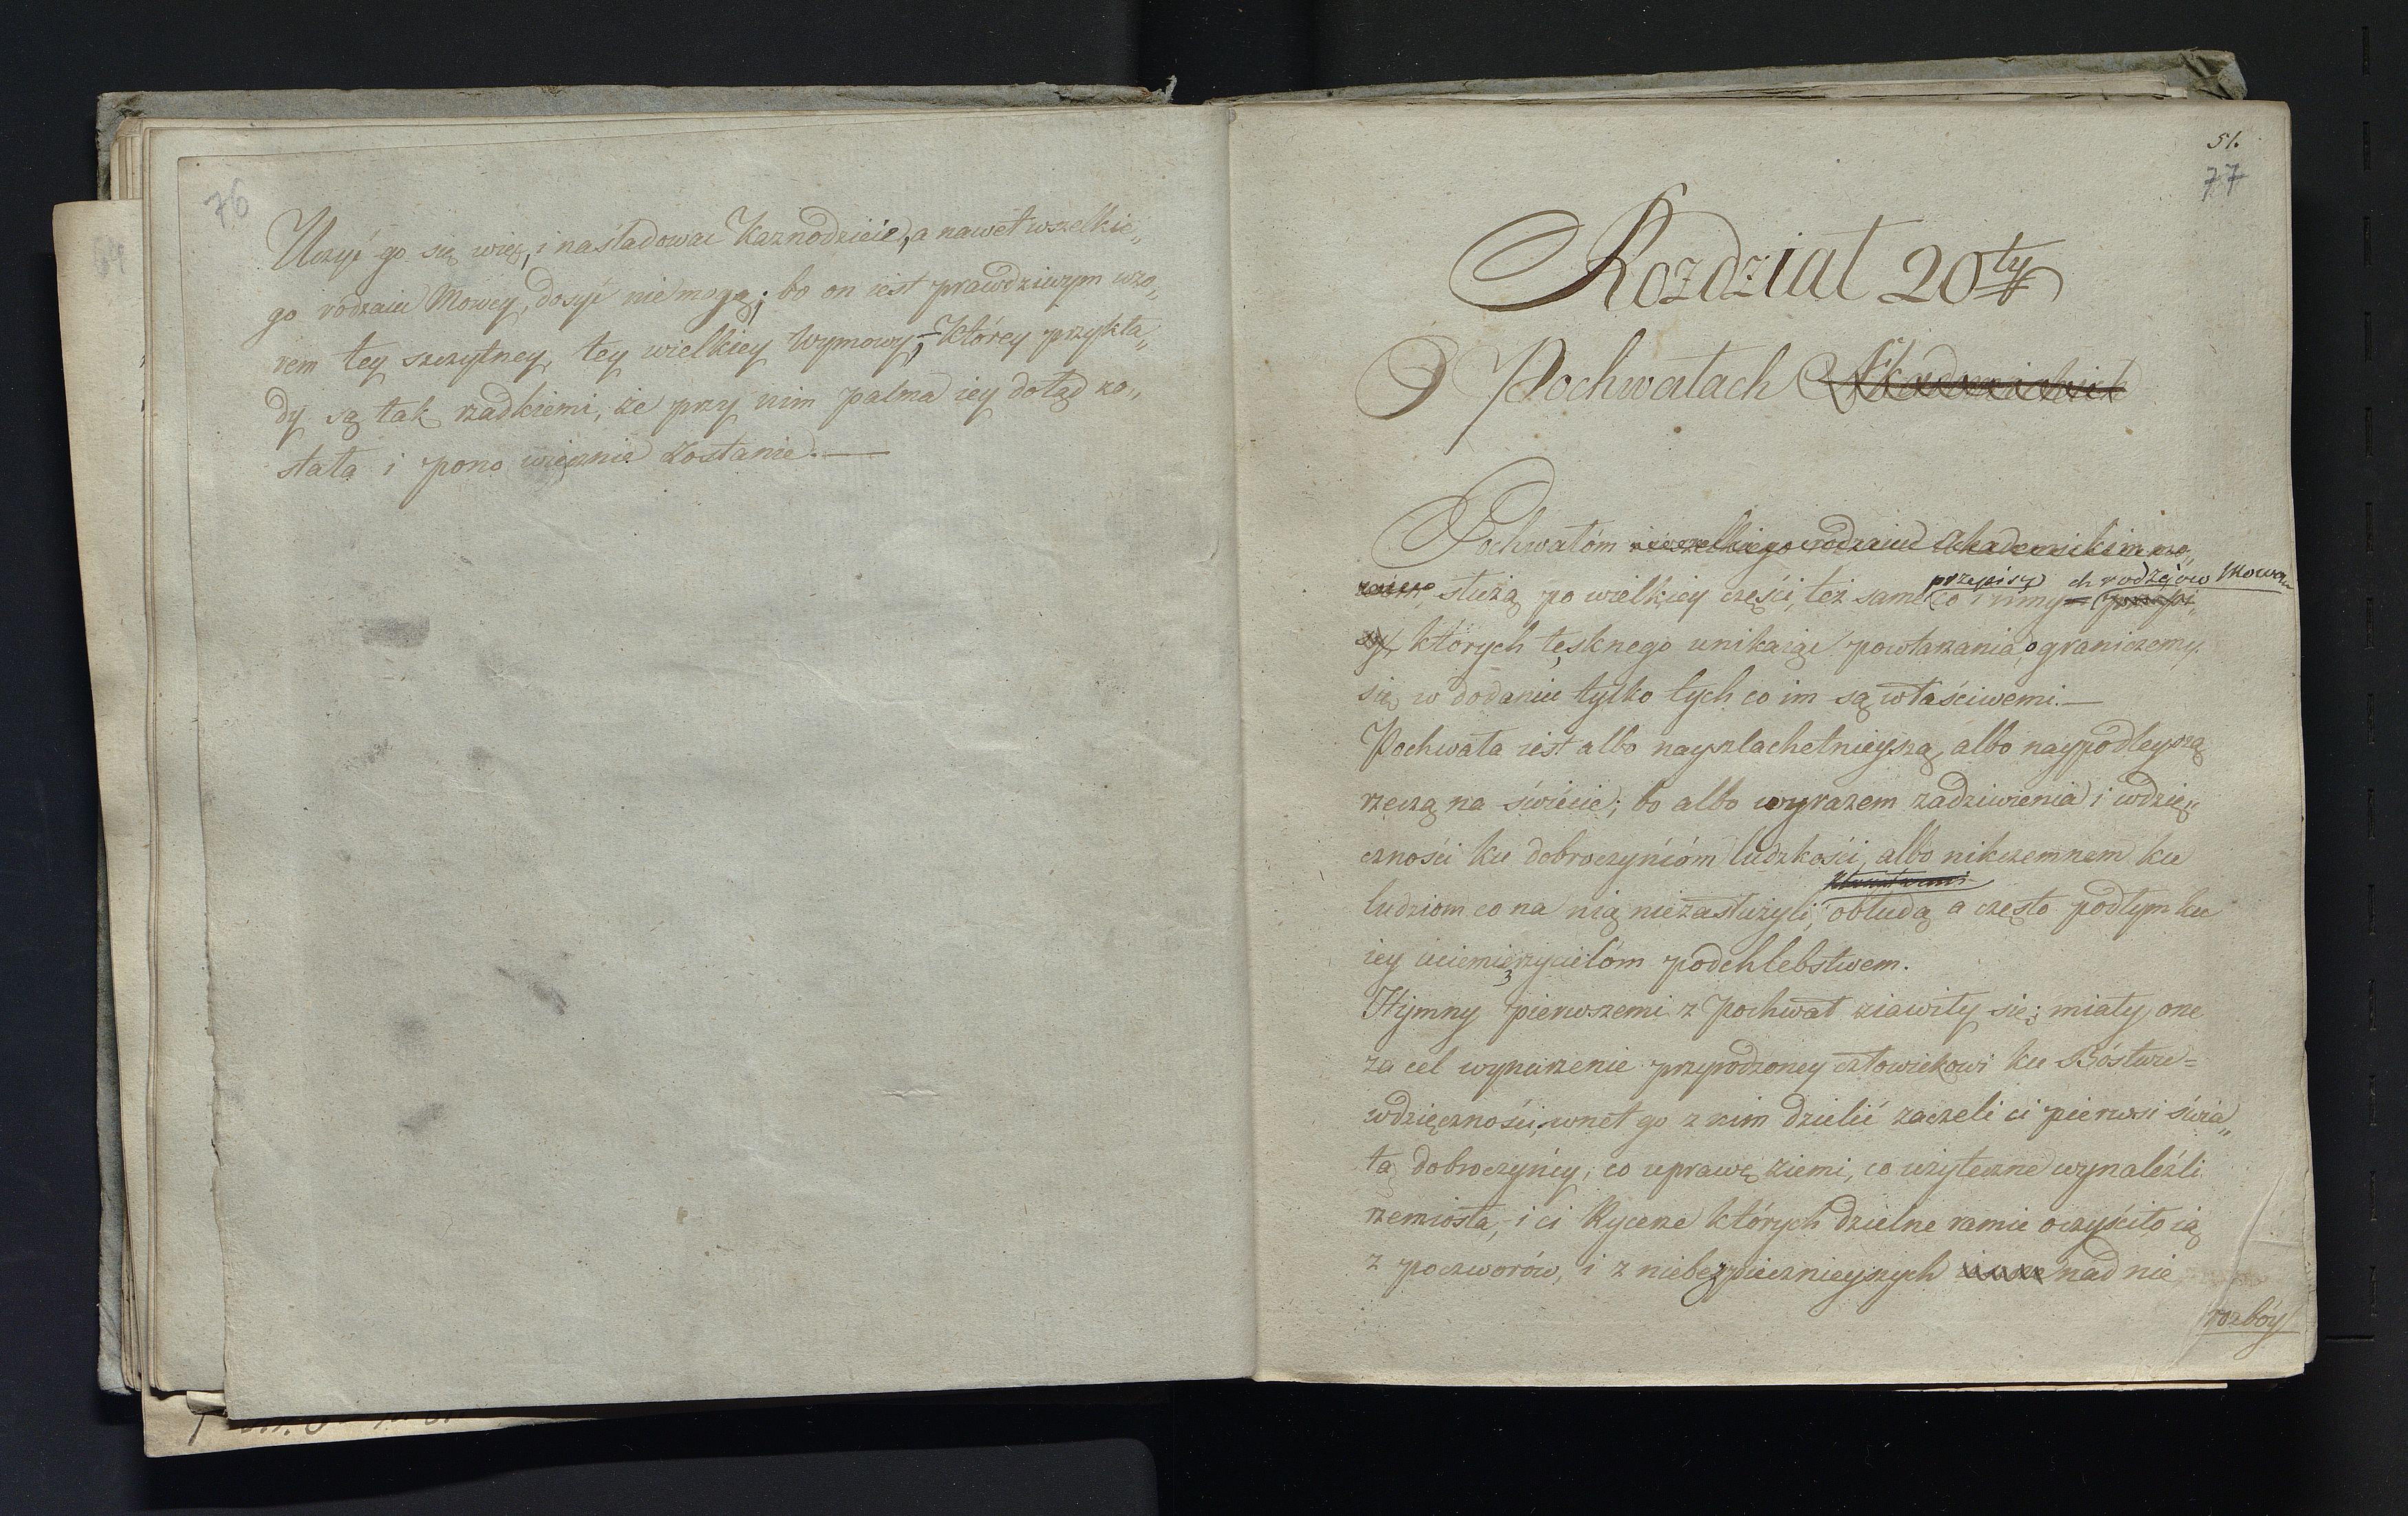 76
Uczyć go się więc, i naśladować Kaznodzieie, a nawet wszelkie„
go rodzaiu Mowcy, dosyć nie mogą; bo on iest prawdziwym wzo„
rem tey szczytney, tey wielkiey Wymowy, którey przykła„
dy są tak rzadkiemi, że przy nim palma iey dotąd zo„
stała i pono wiecznie zostanie.—
51.
77
Rozdział 20ty
O Pochwałach Akademickich
Pochwałóm wszelkiego rodzaiu Akademickim mo„
przepisy ch rodzajów Mowom
służą po wielkiey części, też same co i inny przepi„
sy, których tęsknego unikaiąc powtarzania, ograniczemy
się w dodaniu tylko tych co im są właściwemi.—
Pochwała iest albo nayszlachetnieyszą, albo naypodleyszą
rzeczą na świecie; bo albo wyrazem zadziwienia i wdzię„
czności ku dobroczyńcóm ludzkości, albo nikczemnem ku
ludziom co na nią niezasłużyli, obłudą a często podłym ku
iey uciemiężycielóm podchlebstwem.
Hymny pierwszemi z Pochwał ziawiły się; miały one
za cel wynurzenie przyrodzoney człowiekowi ku Bóstwu=
wdzięczności; wnet go z nim dzielić zaczeli ci pierwsi świa„
ta dobroczyńcy, co uprawę ziemi, co użyteczne wynaleźli
rzemiosła, i ci Rycerze których dzielne ramie oczyściło ią
z poczworów, i z niebezpiecznieyszych nad nie
rozbóy